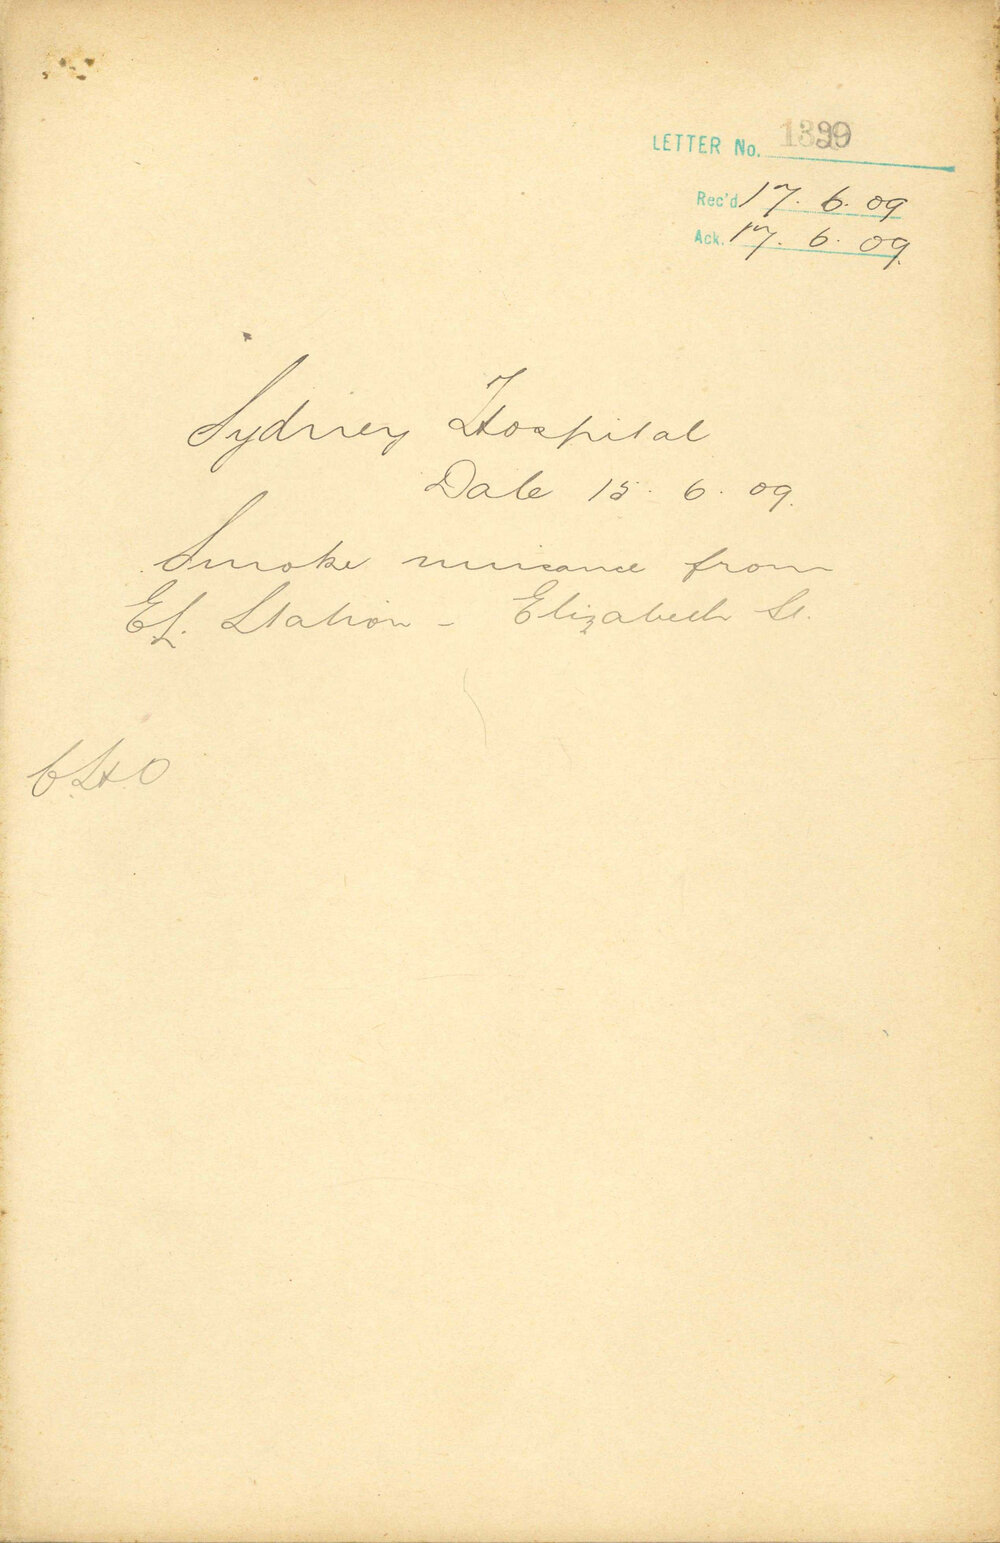 LETTER No. 1399
Rec'd 17. 6. 09
Ack. 17. 6. 09.
Sydney Hospital
Date 15. 6. 09.
Smoke nuisance from
EL. Station - Elizabeth St.
C.H.O